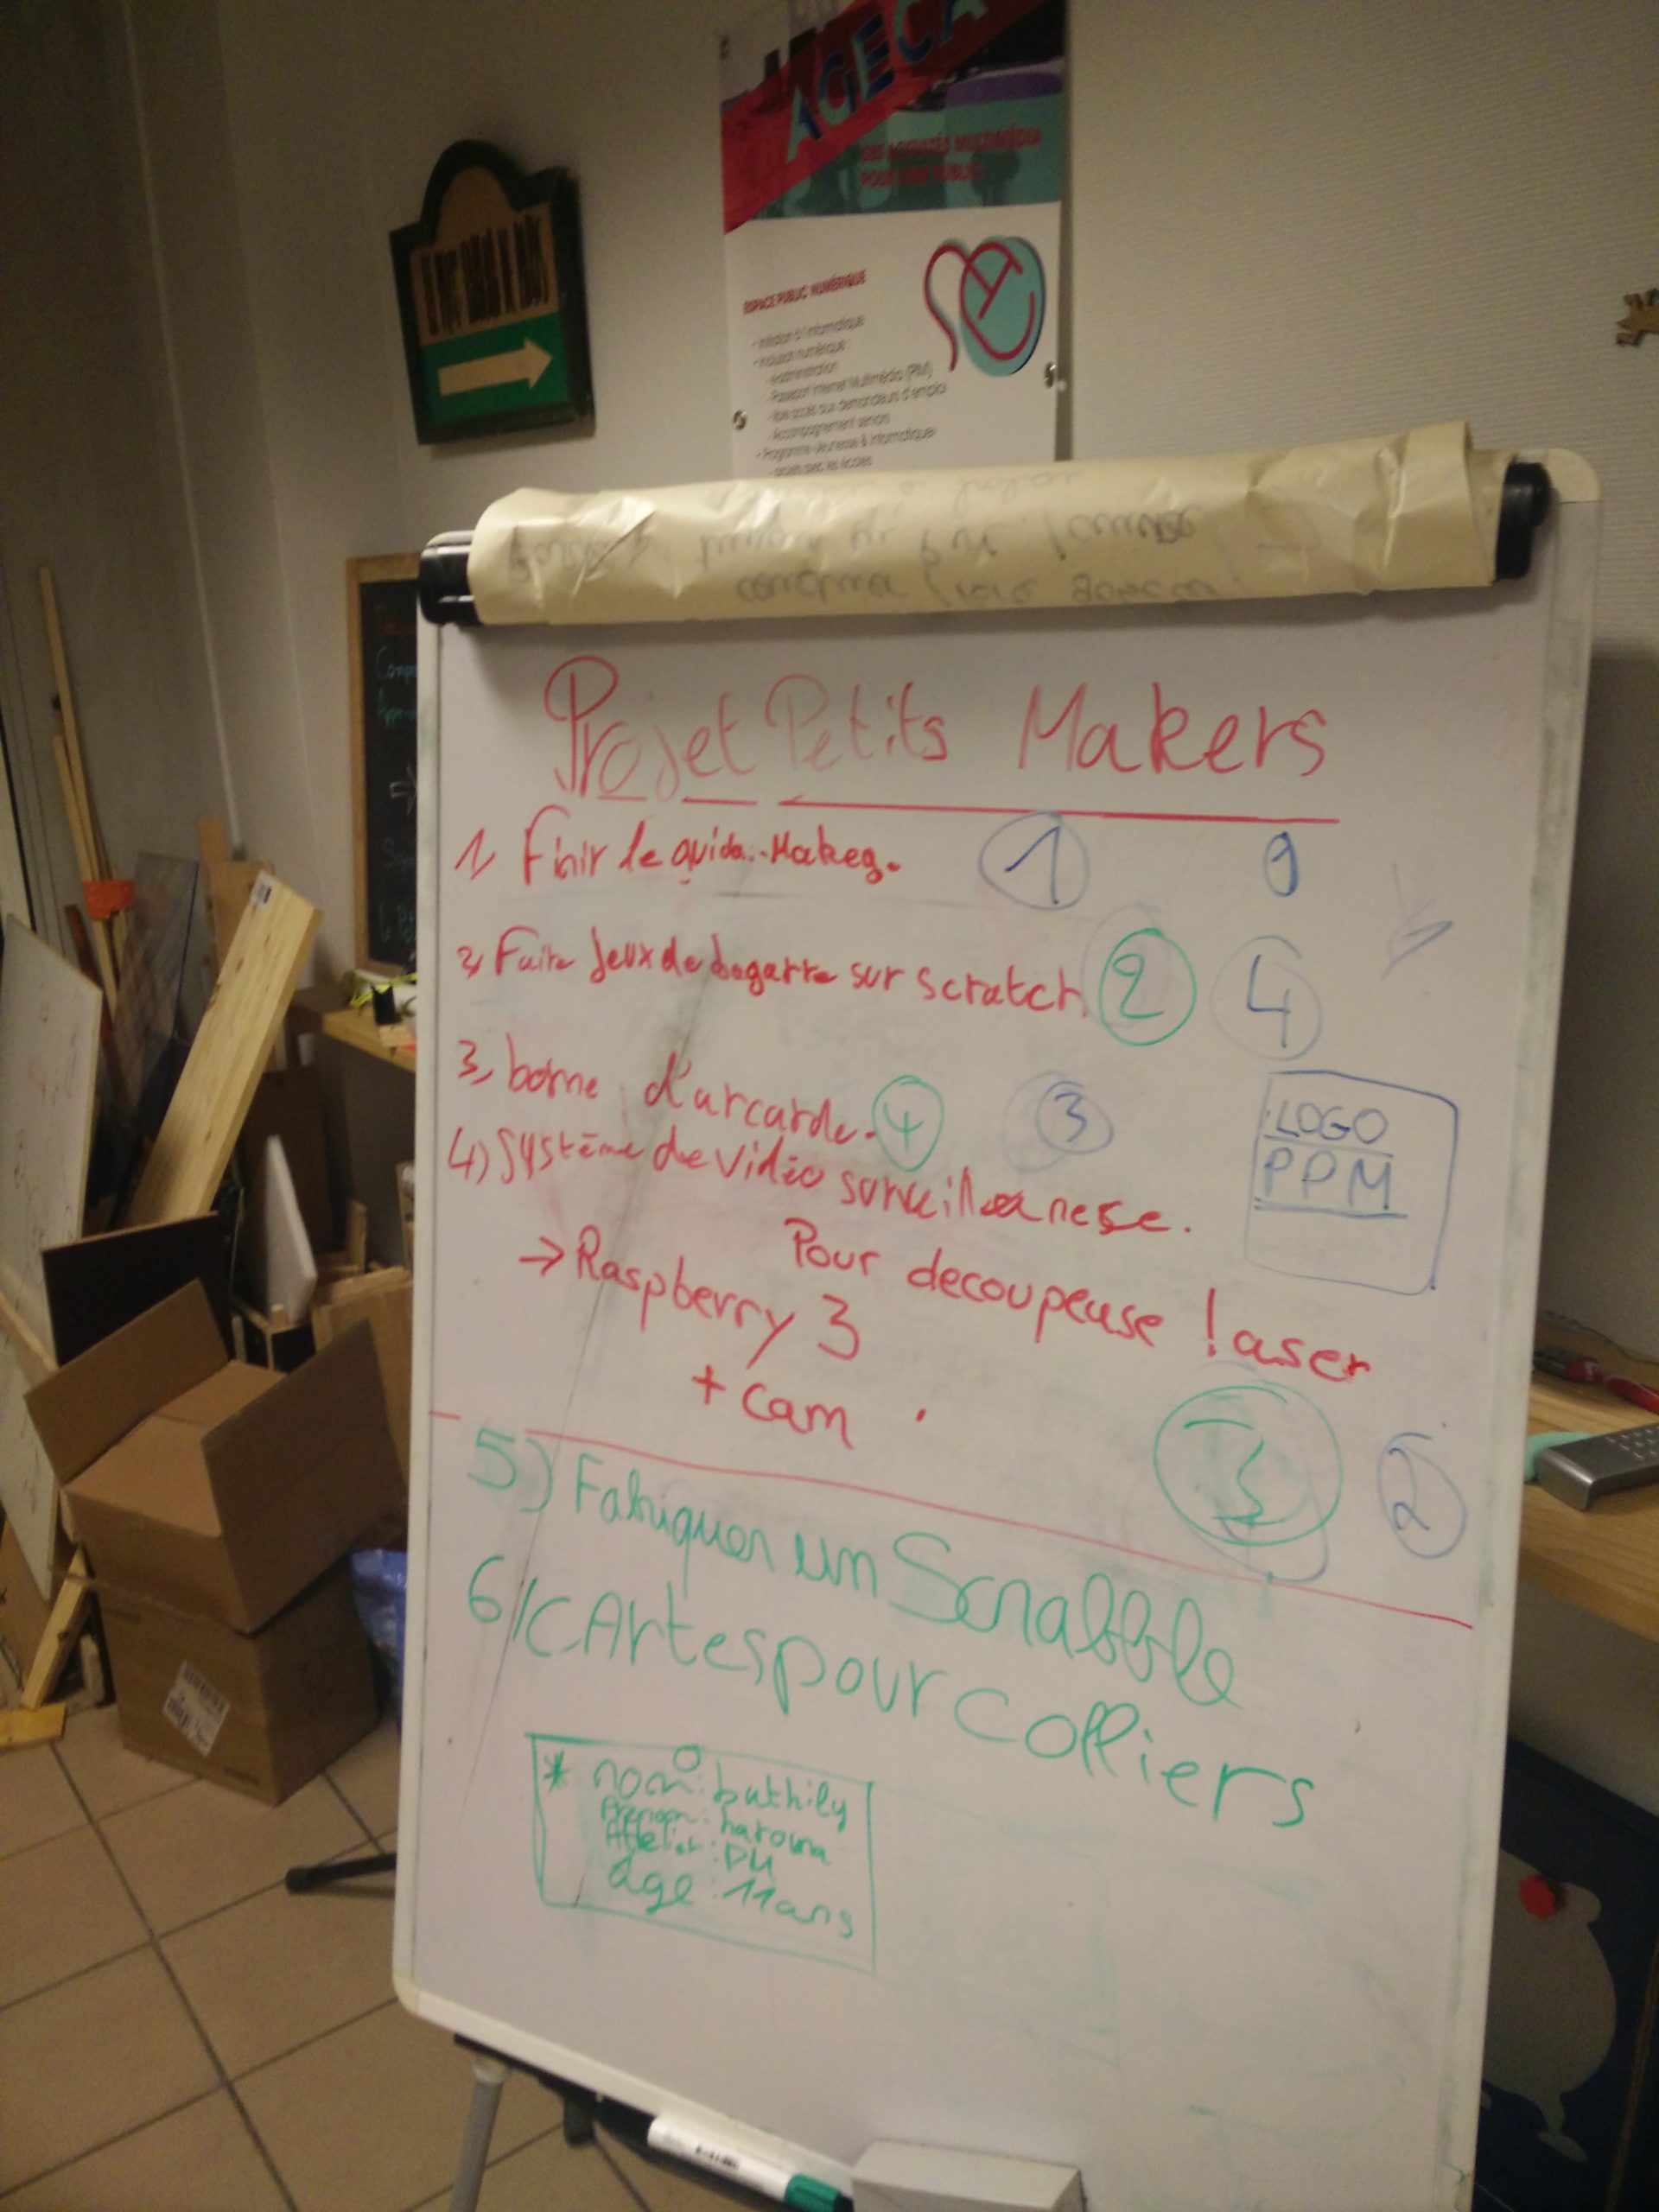 AGECA
DES ACTIVITÉS MULTIMÉDIA
POUR TOUT PUBLIC
ESPACE PUBLIC NUMÉRIQUE
• Initiation à l'informatique
• Inclusion numérique
- e-administration
- Passeport Internet Multimédia (PIM)
- libre accès aux demandeurs d'emploi
- Accompagnement seniors
• Programme «Jeunesse & Informatique»
Projet Petits Makers
1, Finir le guide Makey. 1
2, Faire Jeux de bagarre sur Scratch 2 4
3, borne d'arcarde. 4 3
LOGO
PPM
4) Système de vidéo surveillanesce.
Pour decoupeuse laser
→ Raspberry 3
+ cam
3 2
5) Fabriquer un Scrabble
6/ CArtes pour Colliers
* nom : bathily
Prenom : harouna
Attelier : PM
âge : 11 ans